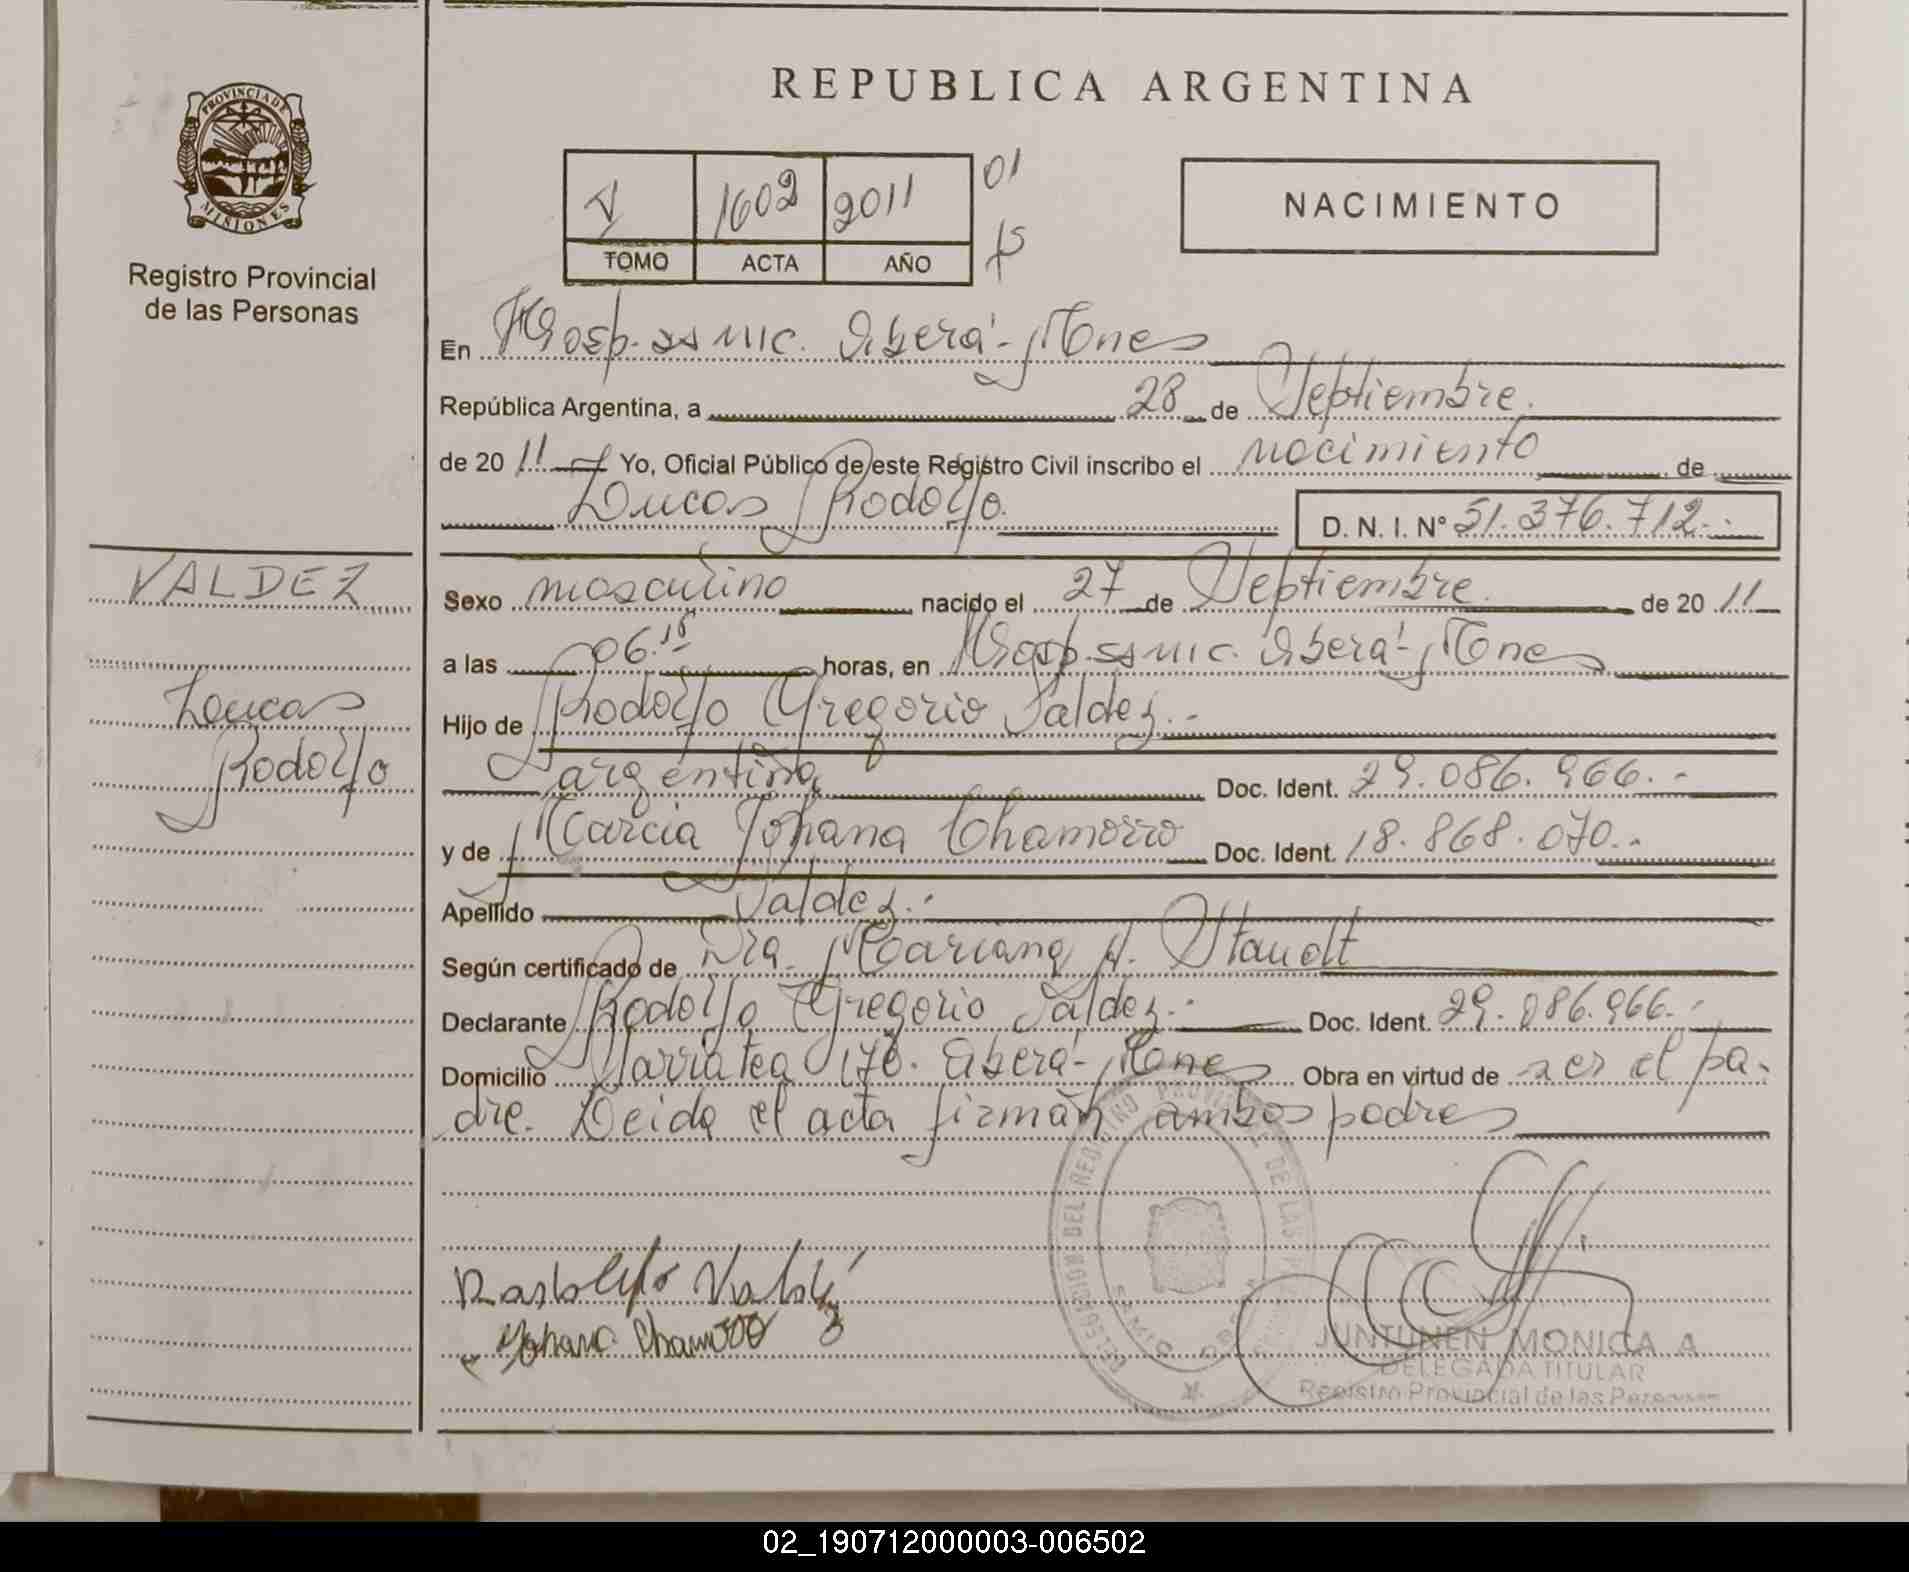 REPUBLICA ARGENTINA
PROVINCIA DE
MISIONES
Registro Provincial
de las Personas
V 1602 2011 01
TOMO ACTA AÑO 15
NACIMIENTO
En Hosp. ss mic. Oberá - Mnes
República Argentina, a 28 de Septiembre.
de 20 11 Yo, Oficial Público de este Registro Civil inscribo el nacimiento de
Lucas Rodolfo. D. N. I. Nº 51.376.712.-
VALDEZ
Lucas
Rodolfo
Sexo masculino nacido el 27 de Septiembre. de 20 11
a las 06.15 horas, en Hosp. ss mic. Oberá - Mnes
Hijo de Rodolfo Gregorio Valdez.-
argentina Doc. Ident. 29.086.966.-
y de Marcia Johana Chamorro Doc. Ident. 18.868.070.-
Apellido Valdez.-
Según certificado de Dra. Mariana A. Staudt
Declarante Rodolfo Gregorio Valdez.- Doc. Ident. 29.086.966.-
Domicilio Larratea 170. Oberá - Mnes Obra en virtud de ser el pa-
dre. Leida el acta firman ambos padres
DELEGACION DEL REGISTRO PROVINCIAL DE LAS
Rodolfo Valdez
Johana Chamorro
JUNTUNEN MONICA A
DELEGADA TITULAR
Registro Provincial de las Personas
02_190712000003-006502